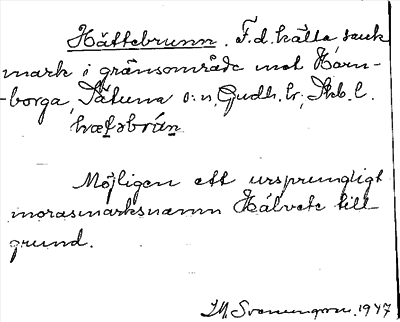 Hättebrunn. F.d. källa samt
mark i gränsområde mot Horn-
-borga, Sätuna o: n, Gudh. hr; Skb. l.
hæt̠əbrún̠n̠
Möjligen ett ursprungligt
morasmarksnamn Hálvete till
grund.
1947